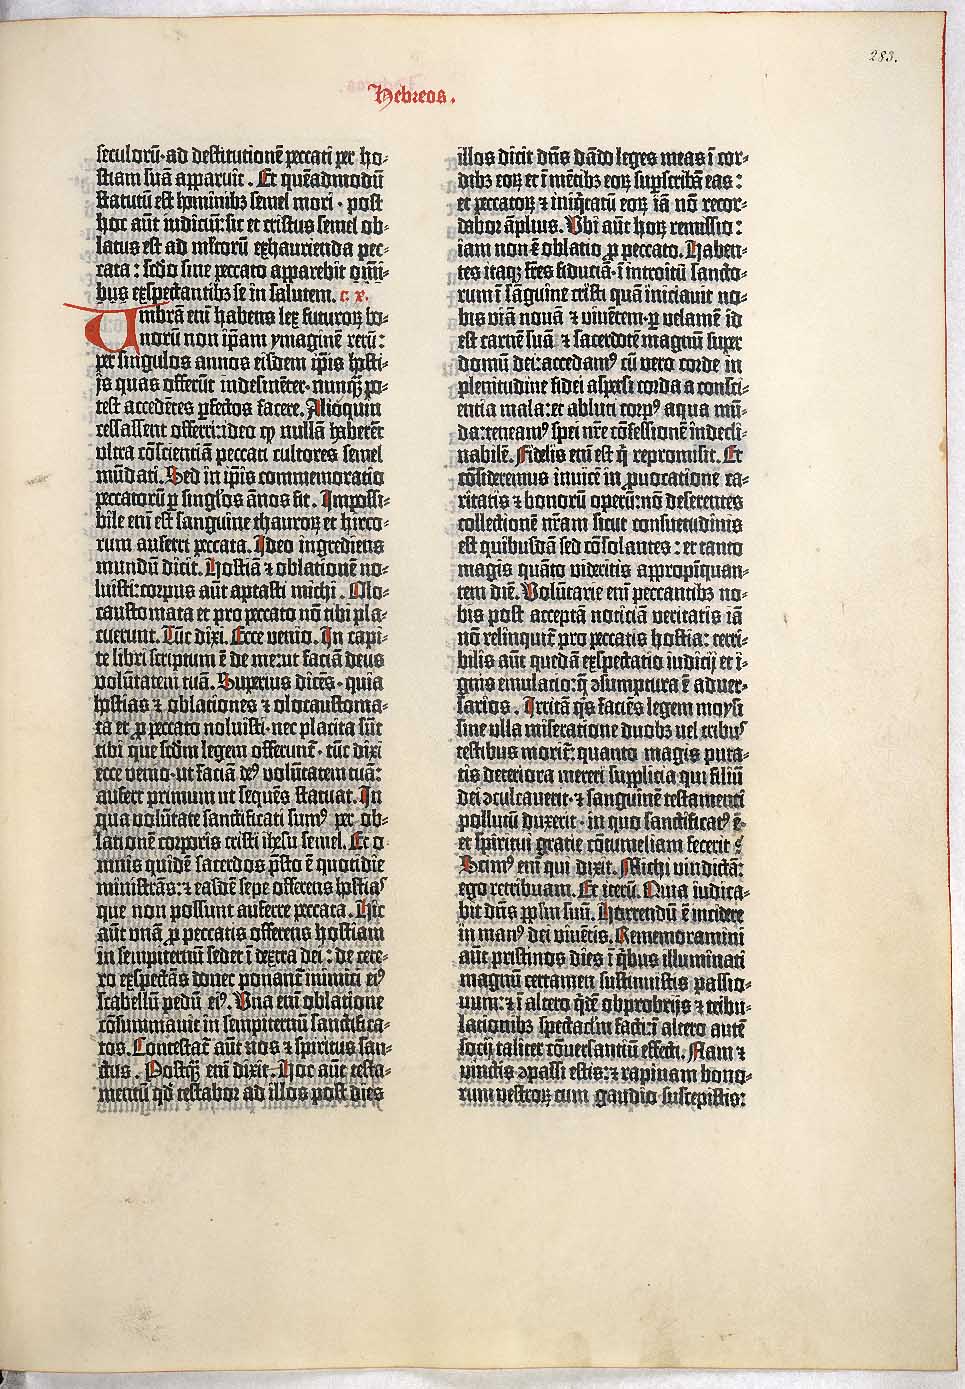 283.
Hebreos.
seculorū·ad destitutionē peccati per ho-
stiam suā apparuit. Et quēadmodū
statutū est hominibꝫ semel mori · post
hoc aūt iudiciū: sic et cristus semel ob-
latus est ad mltorū exhaurienda pec-
cata: scdo sine peccato apparebit omi-
bus exspectantibꝫ se in salutem. c. x.
Umbrā eni habens lex futuroꝝ bo-
norū non ipam ymaginē rerū:
per singulos annos eisdem ipis hosti-
js quas offerūt indesinēter·nunꝙ po-
test accedētes ꝑfectos facere. Alioquin
cessassent offerri: ideo ꝙ nullā haberēt
ultra cōscientiā peccati cultores semel
mūdati. Sed in ipis commemoratio
peccatorū ꝑ singlos ānos fit. Impossi-
bile eni est sanguine thauroꝝ et hirco-
rum auferri peccata. Ideo ingrediens
mundū dicit. Hostiā ⁊ oblationē no-
luisti: corpus aūt aptasti michi. Olo-
caustomata et pro peccato nō tibi pla-
cuerunt. Tūc dixi. Ecce venio. In capi-
te libri scriptum ē de me: ut faciā deus
volūtatem tuā. Superius dicēs · quia
hostias ⁊ oblationes ⁊ olocaustoma-
ta et ꝓ peccato noluisti·nec placita sūt
tibi que scdm legem offerunt· tūc dixi
ecce venio·ut faciā deꝰ volūtatem tuā:
aufert primum ut sequēs statuat. In
qua volūtate sanctificati sumꝰ per ob-
lationē corporis cristi ihesu semel. Et o-
mnis quidē sacerdos p̄sto ē quotidie
ministrās: ⁊ easdē sepe offerens hostias
que non possunt auferre peccata. Hic
aūt unā ꝓ peccatis offerens hostiam
in sempiternū sedet ī dextra dei: de cete-
ro exspectās donec ponant̄ inimici eiꝰ
scabellū pedū eiꝰ. Una eni oblatione
cōsummauit in sempiternū sanctifica-
tos. Contestat̄ aūt nos ⁊ spiritus san-
ctus. Postꝙ eni dixit. Hoc aūt testa-
mentū qd̄ testabor ad illos post dies
illos dicit dn̄s dādo leges meas ī cor-
dibꝫ eoꝝ et ī mētibꝫ eoꝝ supscribā eas:
et peccatoꝝ ⁊ iniqtatū eoꝝ iā nō recor-
dabor āplius. Ubi aūt hoꝝ remissio:
iam non ē oblatio ꝓ peccato. Haben-
tes itaqꝫ frēs fiduciā · ī introitū sancto-
rum ī sāguine cristi quā iniciauit no-
bis viā nouā ⁊ viuētem·ꝑ velamē id
est carnē suā ⁊ sacerdotē magnū super
domū dei: accedamꝰ cū vero corde in
plenitudine fidei aspersi corda a consci-
entia mala: et abluti corpꝰ aqua mū-
da: teneamꝰ spei nr̄e cōfessionē indecli-
nabilē. Fidelis eni est q̇ repromisit. Et
cōsideremus inuicē in ꝓuocatione ca-
ritatis ⁊ bonorū operū: nō deserentes
collectionē nr̄am sicut consuetudinis
est quibusdā sed cōsolantes: et tanto
magis quāto videritis appropīquan-
tem diē. Volūtarie eni peccantibꝫ no-
bis post acceptā noticiā veritatis iā
nō relinquit̄ pro peccatis hostia: terri-
bilis aūt quedā exspectatio iudicij et i-
gnis emulacio: q̄ ɔsumptura ē aduer-
sarios. Irritā q̇s faciēs legem moysi
sine ulla miseratione duobꝫ uel tribꝰ
testibus morit̄: quanto magis puta-
tis deteriora mereri supplicia qui filiū
dei ɔculcauerit·⁊ sanguinē testamenti
pollutū duxerit · in quo sanctificatꝰ ē·
et spiritui gratie cōtumeliam fecerit?
Scimꝰ eni qui dixit. Michi vindictā:
ego retribuam. Et iterū. Quia iudica-
bit dn̄s pplm suū. Horrendū ē incidere
in manꝰ dei viuētis. Rememoramini
aūt pristinos dies ī q̇bus illuminati
magnū certamen sustinuistis passio-
num: ⁊ ī altero qdē obprobrijs ⁊ tribu-
lationibꝫ spectaclm facti: ī altero autē
socij taliter cōuersantiū effecti. Nam ⁊
vinctis ɔpassi estis: ⁊ rapinam bono-
rum vestroꝝ cum gaudio suscepistis: